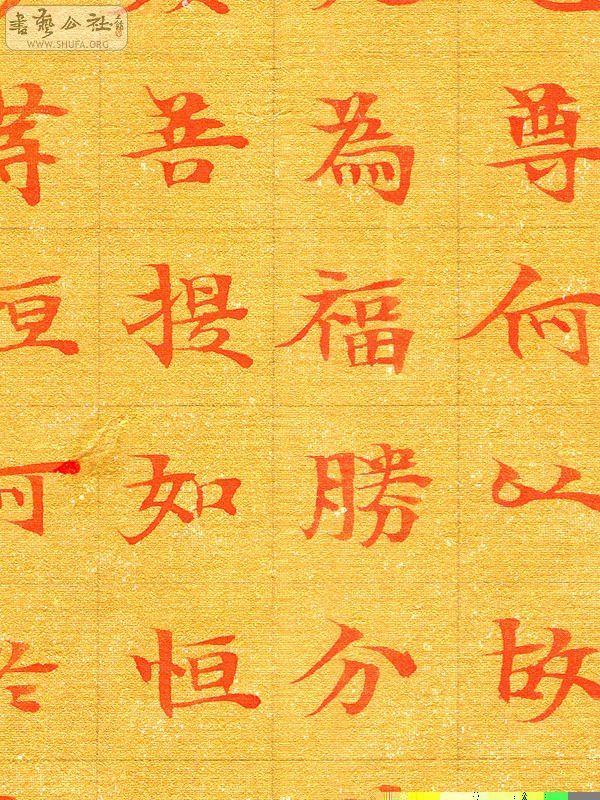 書藝公社
WWW.SHUFA.ORG
尊何以故
為福勝分
菩提如恒
等恒河於